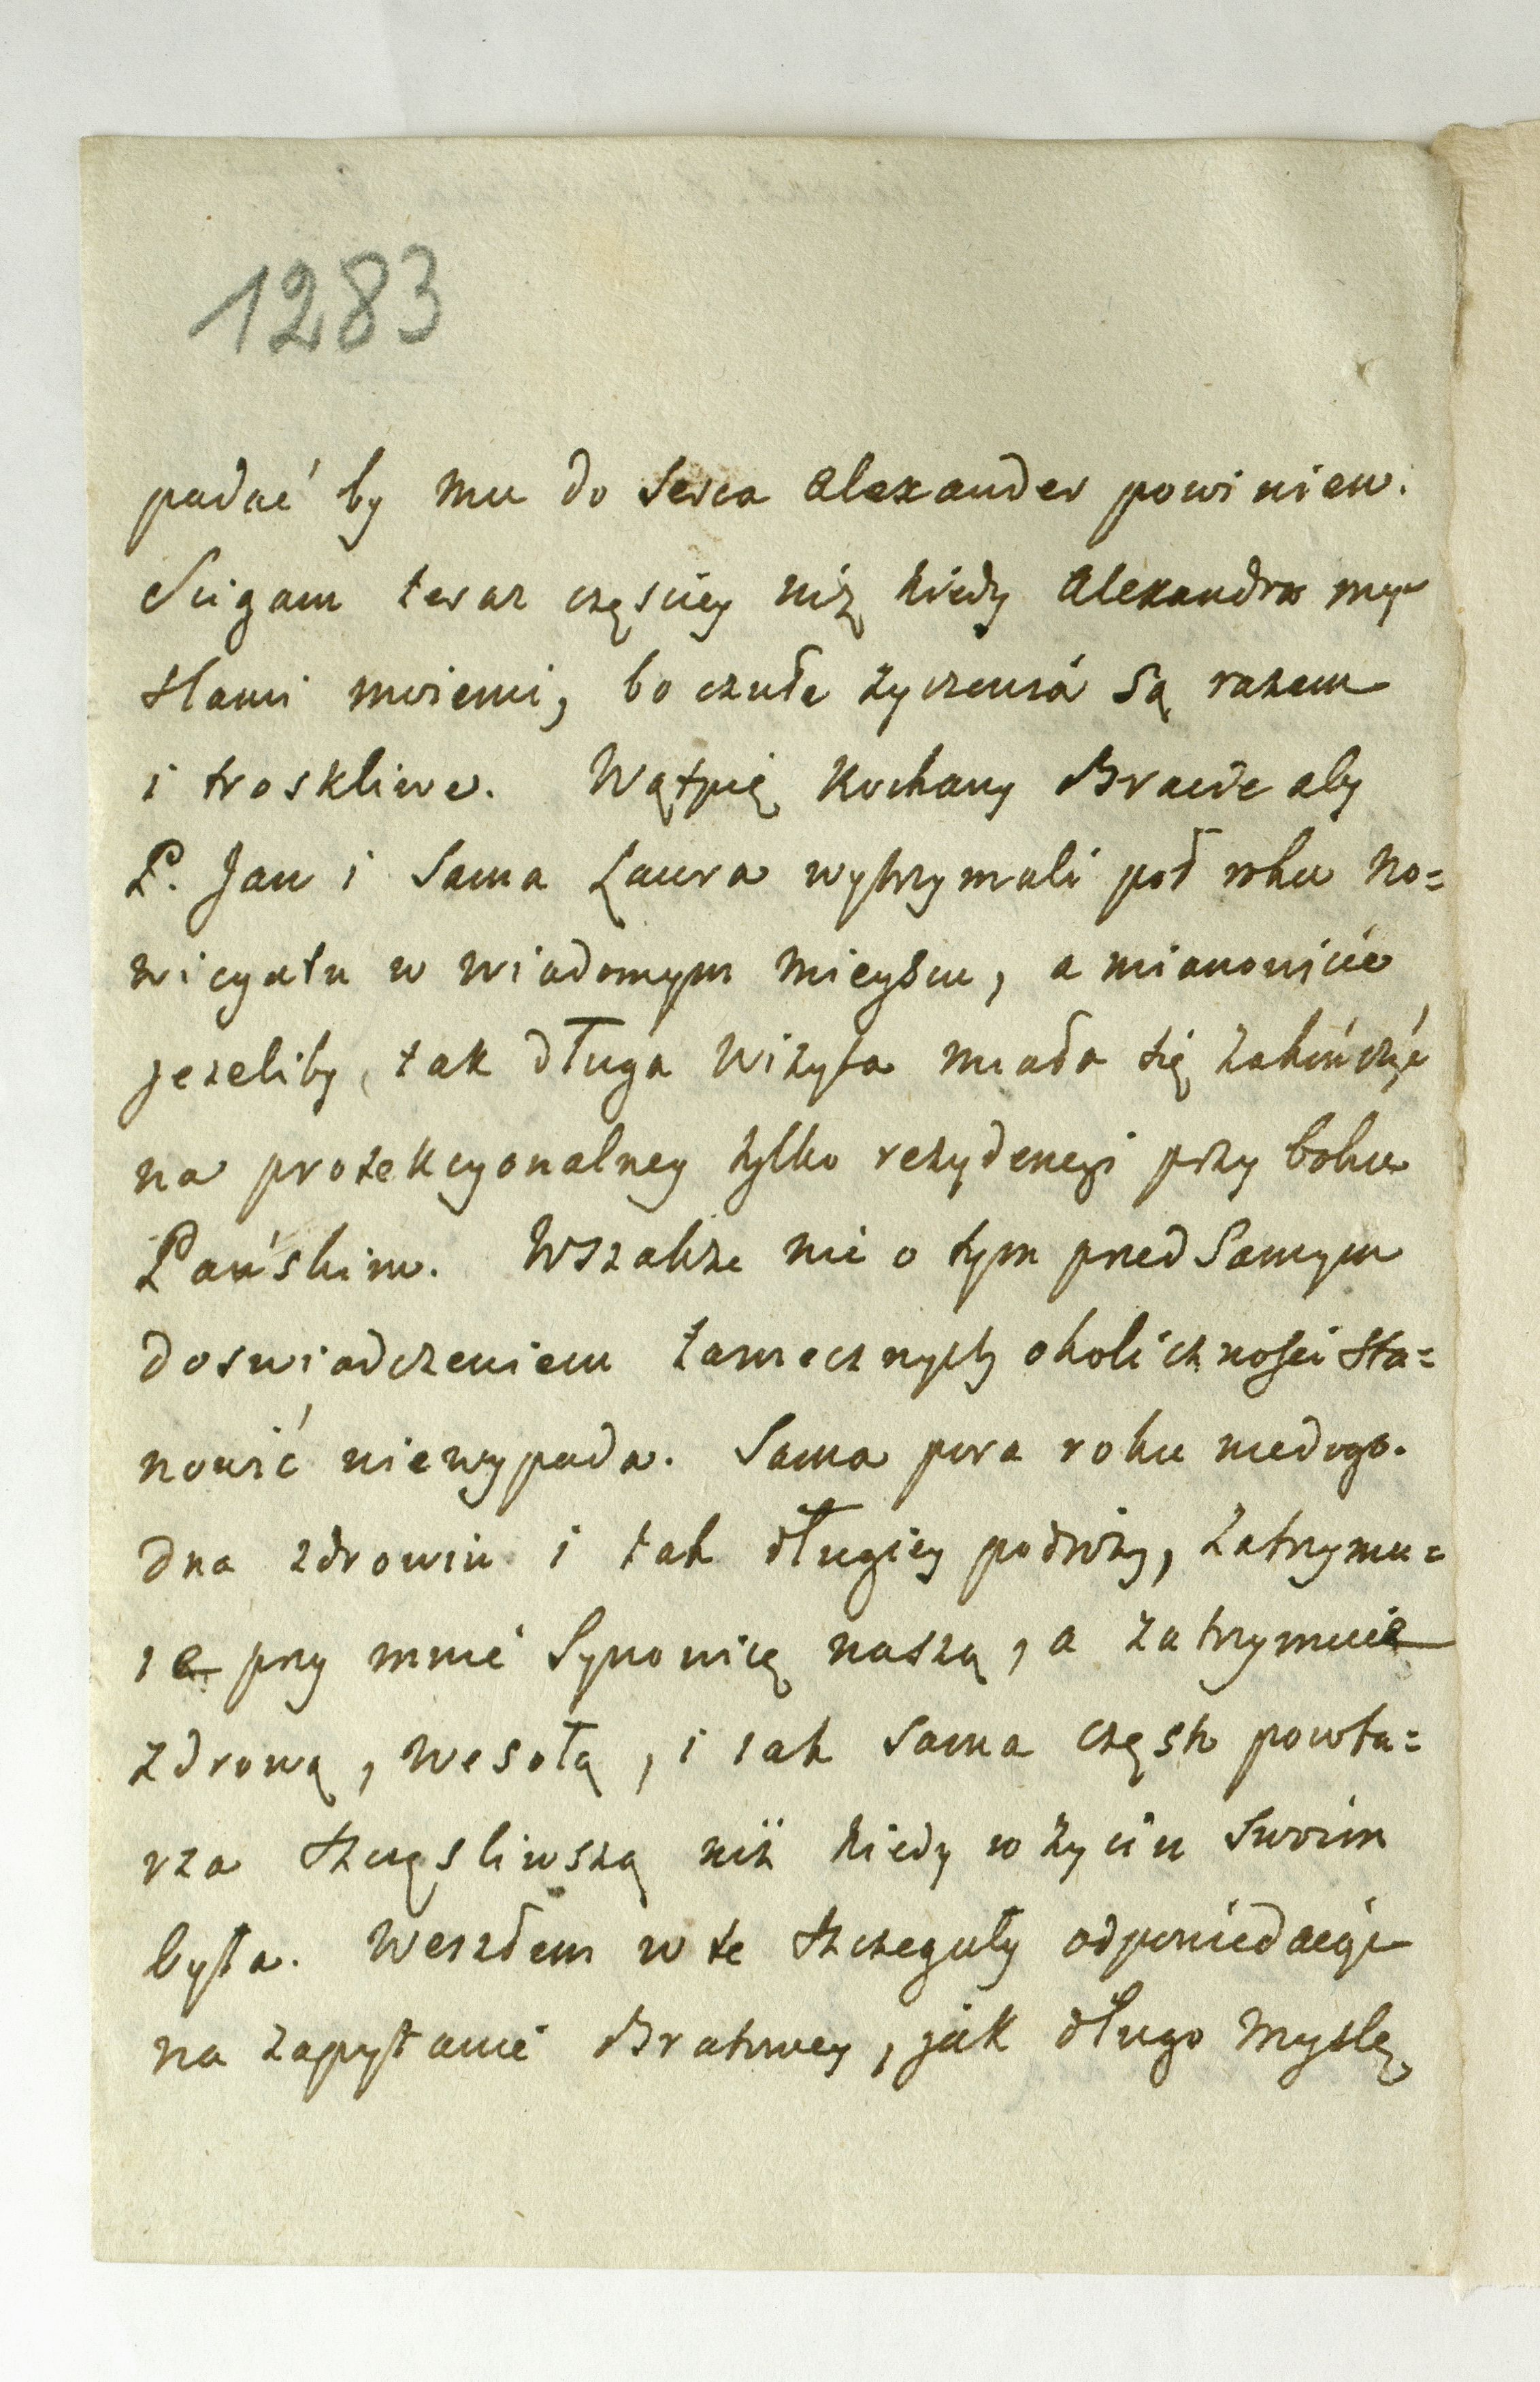 1283
padać by mu do serca Alexander powinien.
Scigam teraz częsciey niż kiedy Alexandra my-
slami moiemi, bo czułe życzenia są razem
i troskliwe. Wątpię Kochany Bracie aby
P. Jan i sama Laura wytrzymali poł roku no=
wicyatu w wiadomym mieyscu, a mianowicie
jezeliby tak długa wizyta miała się zakończyć
na protekcyonalney tylko rezydencyi przy boku
Pańskim. Wszakże nic o tym przed samym
doswiadczeniem tamecznych okoliczności sta=
nowić niewypada. Sama pora roku niedogo-
dna zdrowiu i tak długiey podróży, zatrzymu=
ie przy mnie Synowicę naszą, a zatrzymuie
zdrową, wesołą, i iak sama często powta=
rza szczęsliwszą niż kiedy w życiu swoim
była. Weszłem w te szczeguły odpowiedaiąc
na zapytanie Bratowey, jak długo myslę